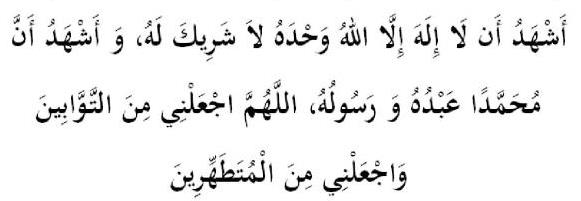 أَشْهَدُ أَن لَا إِلَهَ إِلَّا اللهُ وَحْدَهُ لاَ شَرِيكَ لَهُ، وَ أَشْهَدُ أَنَّ
مُحَمَّدًا عَبْدُهُ وَ رَسُولُهُ، اللَّهُمَّ اجْعَلْنِي مِنَ التَّوَّابِينَ
وَاجْعَلْنِي مِنَ الْمُتَطَهِّرِينَ